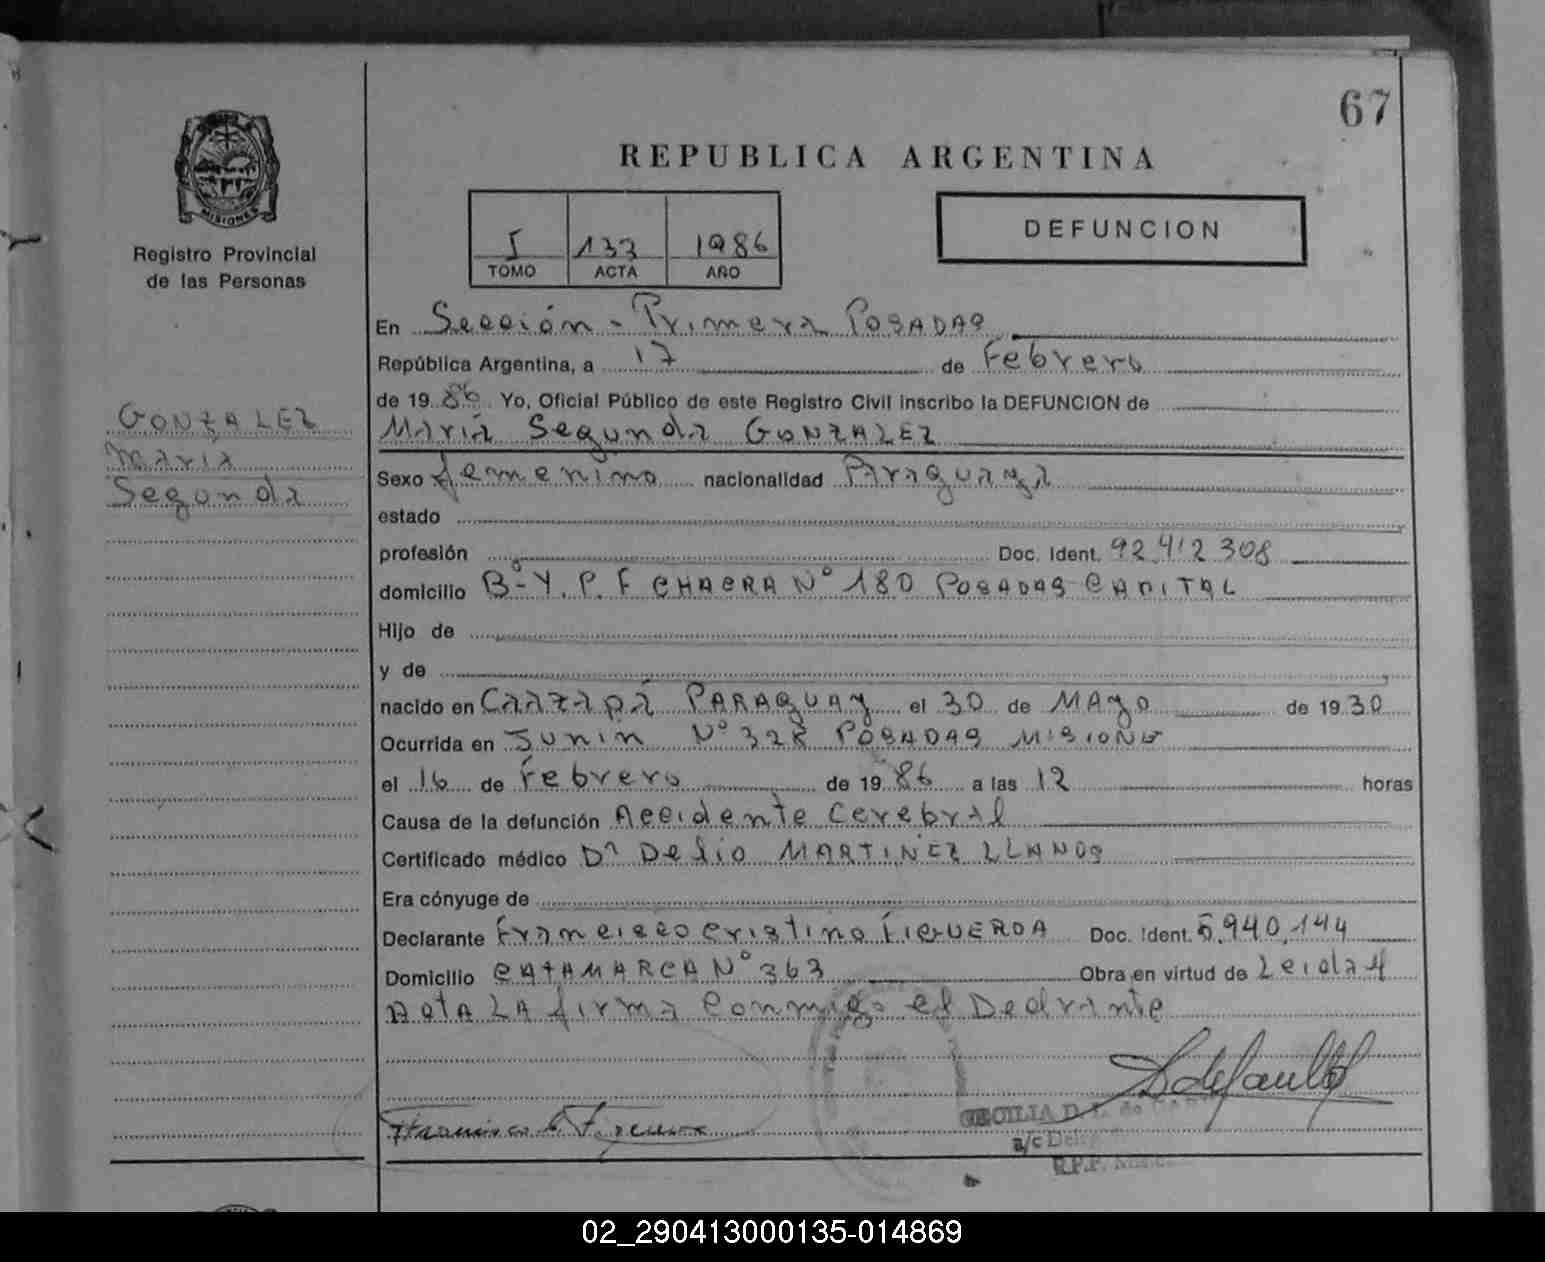 67
REPUBLICA ARGENTINA
MISIONES
Registro Provincial
de las Personas
I 133 1986
TOMO ACTA AÑO
DEFUNCION
GONZALEZ
María
Segunda
En Sección - Primera POSADAS
República Argentina, a 17 de Febrero
de 1986 Yo, Oficial Público de este Registro Civil inscribo la DEFUNCION de
María Segunda GONZALEZ
Sexo femenino nacionalidad Paraguaya
estado
profesión Doc. Ident. 92.412 308
domicilio Bº-Y.P.F CHACRA Nº 180 POSADAS CAPITAL
Hijo de
y de
nacido en Caazapá PARAGUAY el 30 de MAYO de 1930
Ocurrida en Junín Nº 328 POSADAS MISIONES
el 16 de Febrero de 1986 a las 12 horas
Causa de la defunción Accidente Cerebral
Certificado médico Dr Delio MARTINEZ LLANOS
Era cónyuge de
Declarante Francisco Cristino FIGUEROA Doc. Ident. 5.940.144
Domicilio CATAMARCA Nº 363 Obra en virtud de Leida el
Acta LA firma Conmigo el Declrante
CECILIA D.
a/c
R.P.P.
02_290413000135-014869